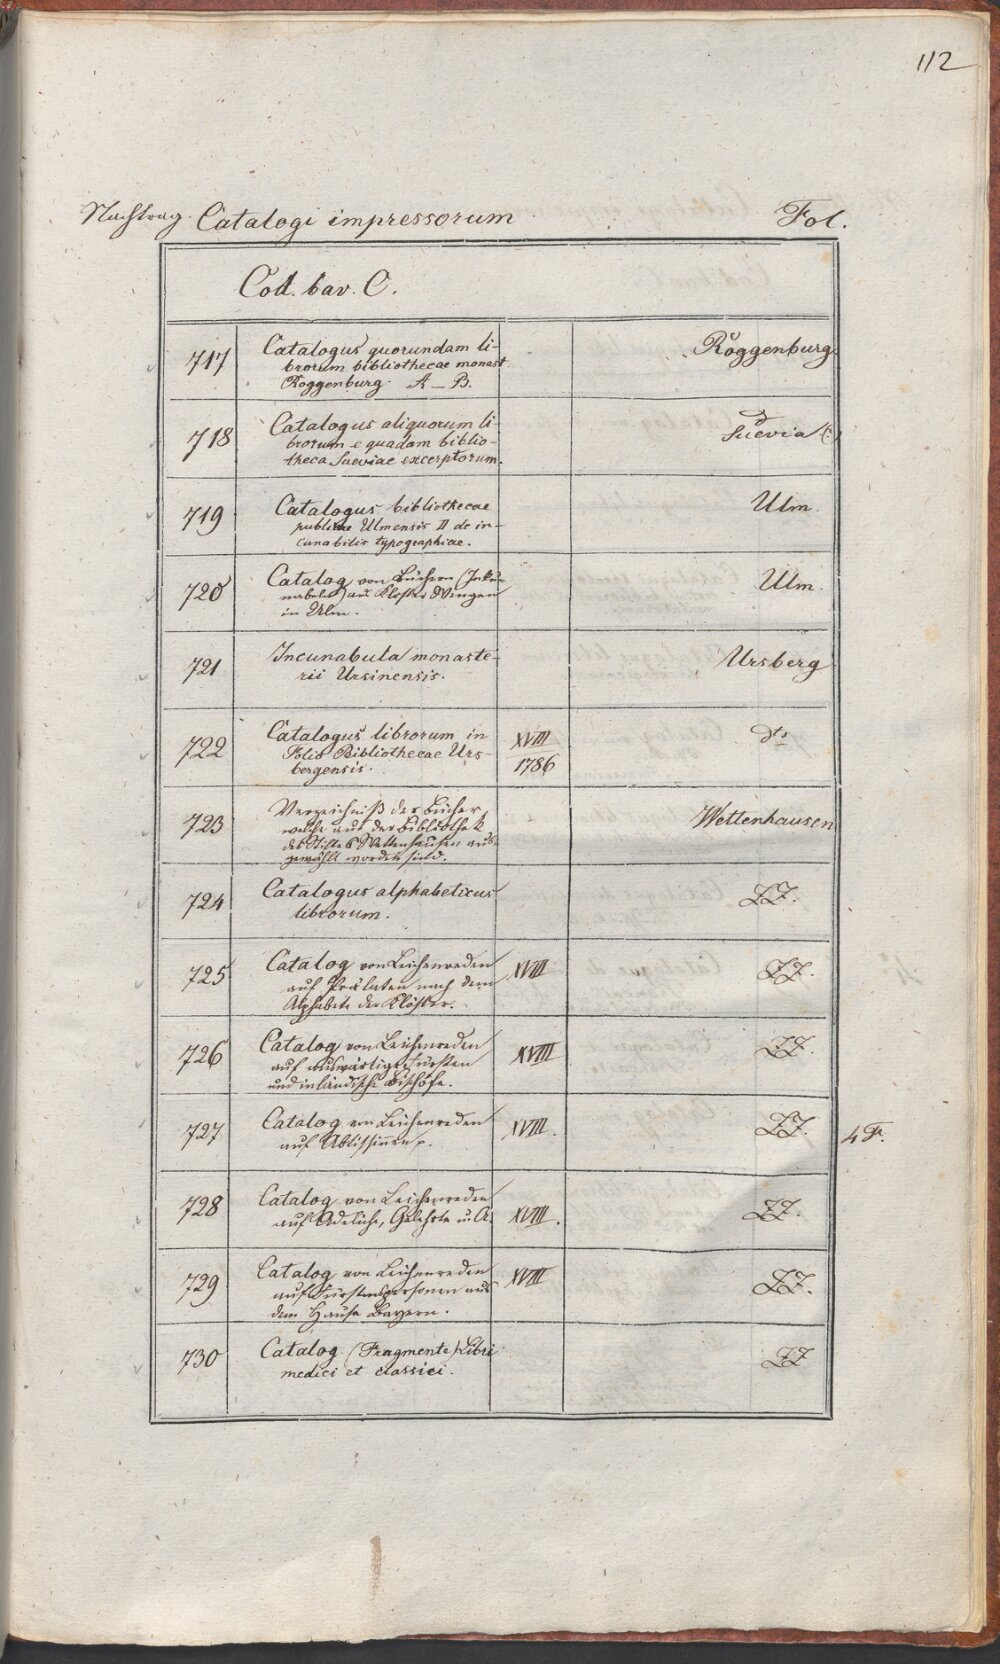 112
Nachtrag. Catalogi impressorum Fol.
Cod. bav. C.
717 Catalogus quorundam li- Roggenburg.
brorum bibliothecae monast.
Roggenburg. A – B.
718 Catalogus aliquorum li- Suevia (:)
brorum e quadam biblio-
theca Sueviae excerptorum.
719 Catalogus bibliothecae Ulm.
publicae Ulmensis II de in-
cunabilis typographiae.
720 Catalog von Büchern (Inku- Ulm.
nabeln) aus Kloster Wengen
in Ulm.
721 Incunabula monaste- Ursberg
rii Ursinensis.
722 Catalogus librorum in XVIII dto
Folio Bibliothecae Urs- 1786
bergensis.
723 Verzeichniß der Bücher, Wettenhausen
welche aus der Bibliothek
des Stiftes Wettenhausen aus-
gewählt worden sind.
724 Catalogus alphabeticus ZZ.
librorum.
725 Catalog von Leichenreden XVIII ZZ.
auf Prälaten nach dem
Alphabete der Klöster.
726 Catalog von Leichenreden XVIII ZZ.
auf auswärtige Fürsten
und inländische Bischöfe.
727 Catalog von Leichenreden XVIII. ZZ. 4 F.
auf Äbtissinnen p.
728 Catalog von Leichenreden XVIII. ZZ.
auf Adeliche, Gelehrte u. A.
729 Catalog von Leichenreden XVIII ZZ.
auf Fürstenpersonen aus
dem Hause Bayern.
730 Catalog. (Fragmente) Libri ZZ
medici et classici.